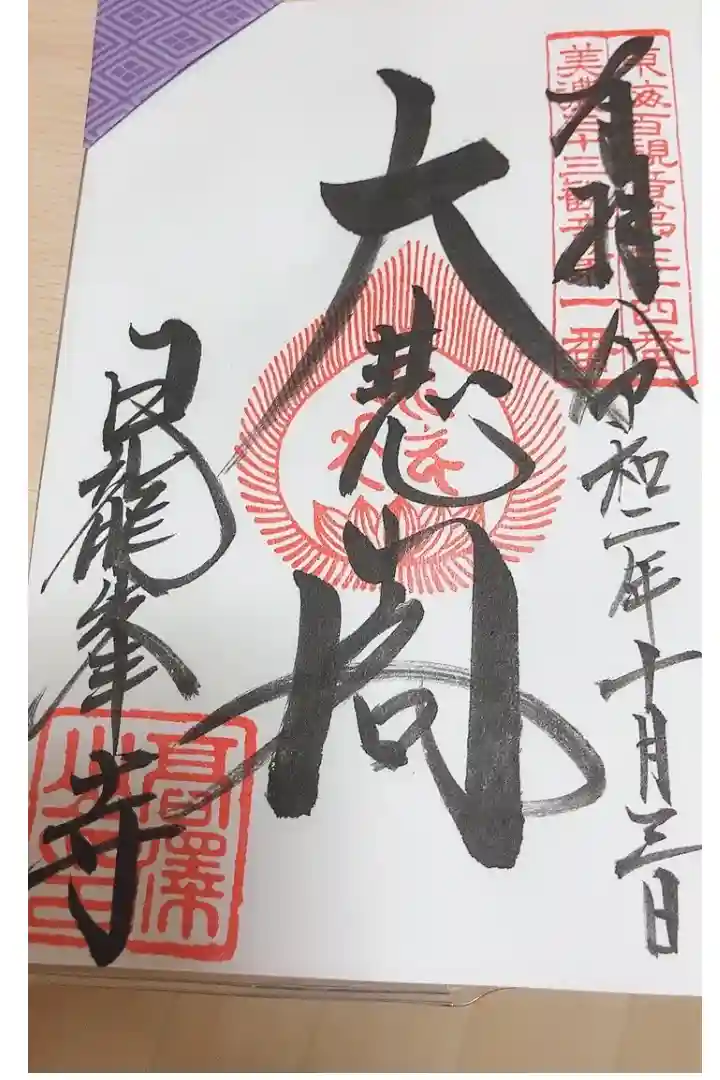 東海百観音第三十四番
美濃三十三観音第一番
奉拝
令和二年十月三日
大悲閣
日龍峯寺
高澤